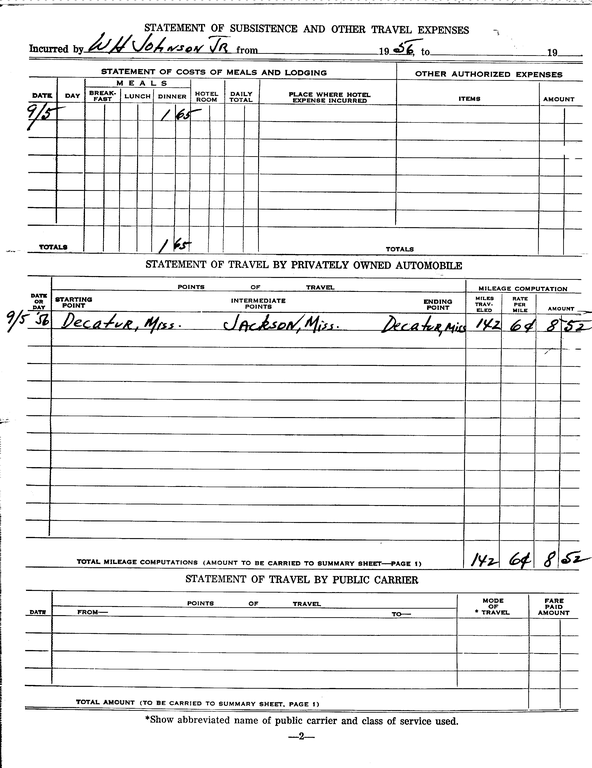 STATEMENT OF SUBSISTENCE AND OTHER TRAVEL EXPENSES
Incurred by W H Johnson Jr from 19 56, to 19
STATEMENT OF COSTS OF MEALS AND LODGING OTHER AUTHORIZED EXPENSES
DATE DAY MEALS BREAK-FAST LUNCH DINNER HOTEL ROOM DAILY TOTAL PLACE WHERE HOTEL EXPENSE INCURRED ITEMS AMOUNT
9/5 1 65
TOTALS 1 65 TOTALS
STATEMENT OF TRAVEL BY PRIVATELY OWNED AUTOMOBILE
POINTS OF TRAVEL MILEAGE COMPUTATION
DATE OR DAY STARTING POINT INTERMEDIATE POINTS ENDING POINT MILES TRAV-ELED RATE PER MILE AMOUNT
9/5 '56 Decatur, Miss. Jackson, Miss. Decatur, Miss 142 6¢ 8 52
TOTAL MILEAGE COMPUTATIONS (AMOUNT TO BE CARRIED TO SUMMARY SHEET—PAGE 1) 142 6¢ 8 52
STATEMENT OF TRAVEL BY PUBLIC CARRIER
POINTS OF TRAVEL
DATE FROM— TO— MODE OF * TRAVEL FARE PAID AMOUNT
TOTAL AMOUNT (TO BE CARRIED TO SUMMARY SHEET, PAGE 1)
*Show abbreviated name of public carrier and class of service used.
—2—